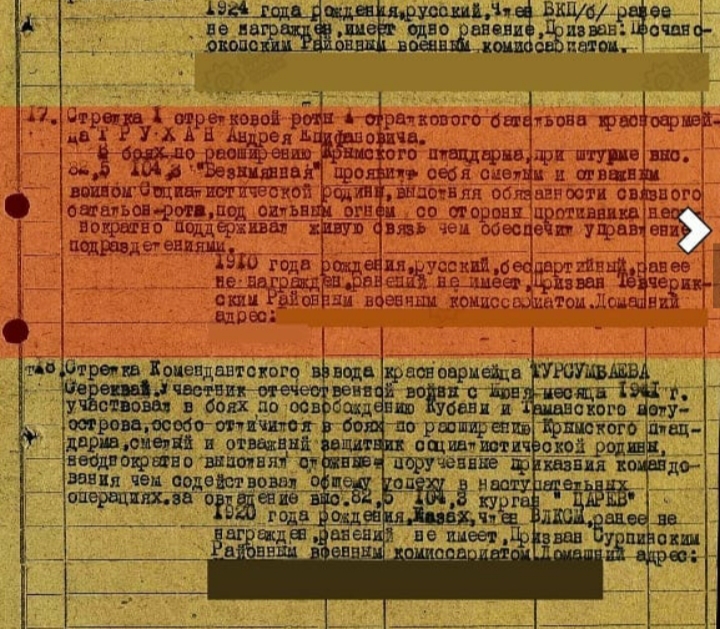 1924 года рождения,русский,член ВКП/б/ ранее
не награжден,имеет одно ранение,Призван: Песчано-
окопским Районным военным комиссариатом.
17. Стрелка I стрелковой роты I стрелкового батальона красноармей-
ца Т Р У Х А Н Андрея Епифановича.
В боях по расширению Крымского плацдарма,при штурме выс.
82,5 104,3 "Безымянная" проявил себя смелым и отважным
воином Социалистической родины,выполняя обязаности связного
батальон-рота,под сильным огнем со стороны противника неод-
нократно поддерживал живую связь чем обеспечил управление
подразделениями.
1910 года рождения,русский,беспартийный,ранее
не награжден,ранений не имеет,Призван
ским Районным военным комиссариатом.Домашний
адрес:
18.Стрелка Комендантского взвода красноармейца ТУРСУМБАЕВА
Сереквай.Участник отечественной войны с Июня месяца 1941 г.
участвовал в боях по освобождению Кубани и Таманского полу-
острова,особо отличился в боях по расширению Крымского плац-
дарма,смелый и отважный защитник социалистической родины,
неоднократно выполнял сложные порученные приказния командо-
вания чем содействовал общему успеху в наступательных
операциях.за овладение выс.82,5 104,3 курган " ЦАРЕВ"
1920 года рождения,Казах,член ВЛКСМ,ранее не
награжден,ранений не имеет,Призван Сурпинским
Районным военным комиссариатом.Домашний адрес: